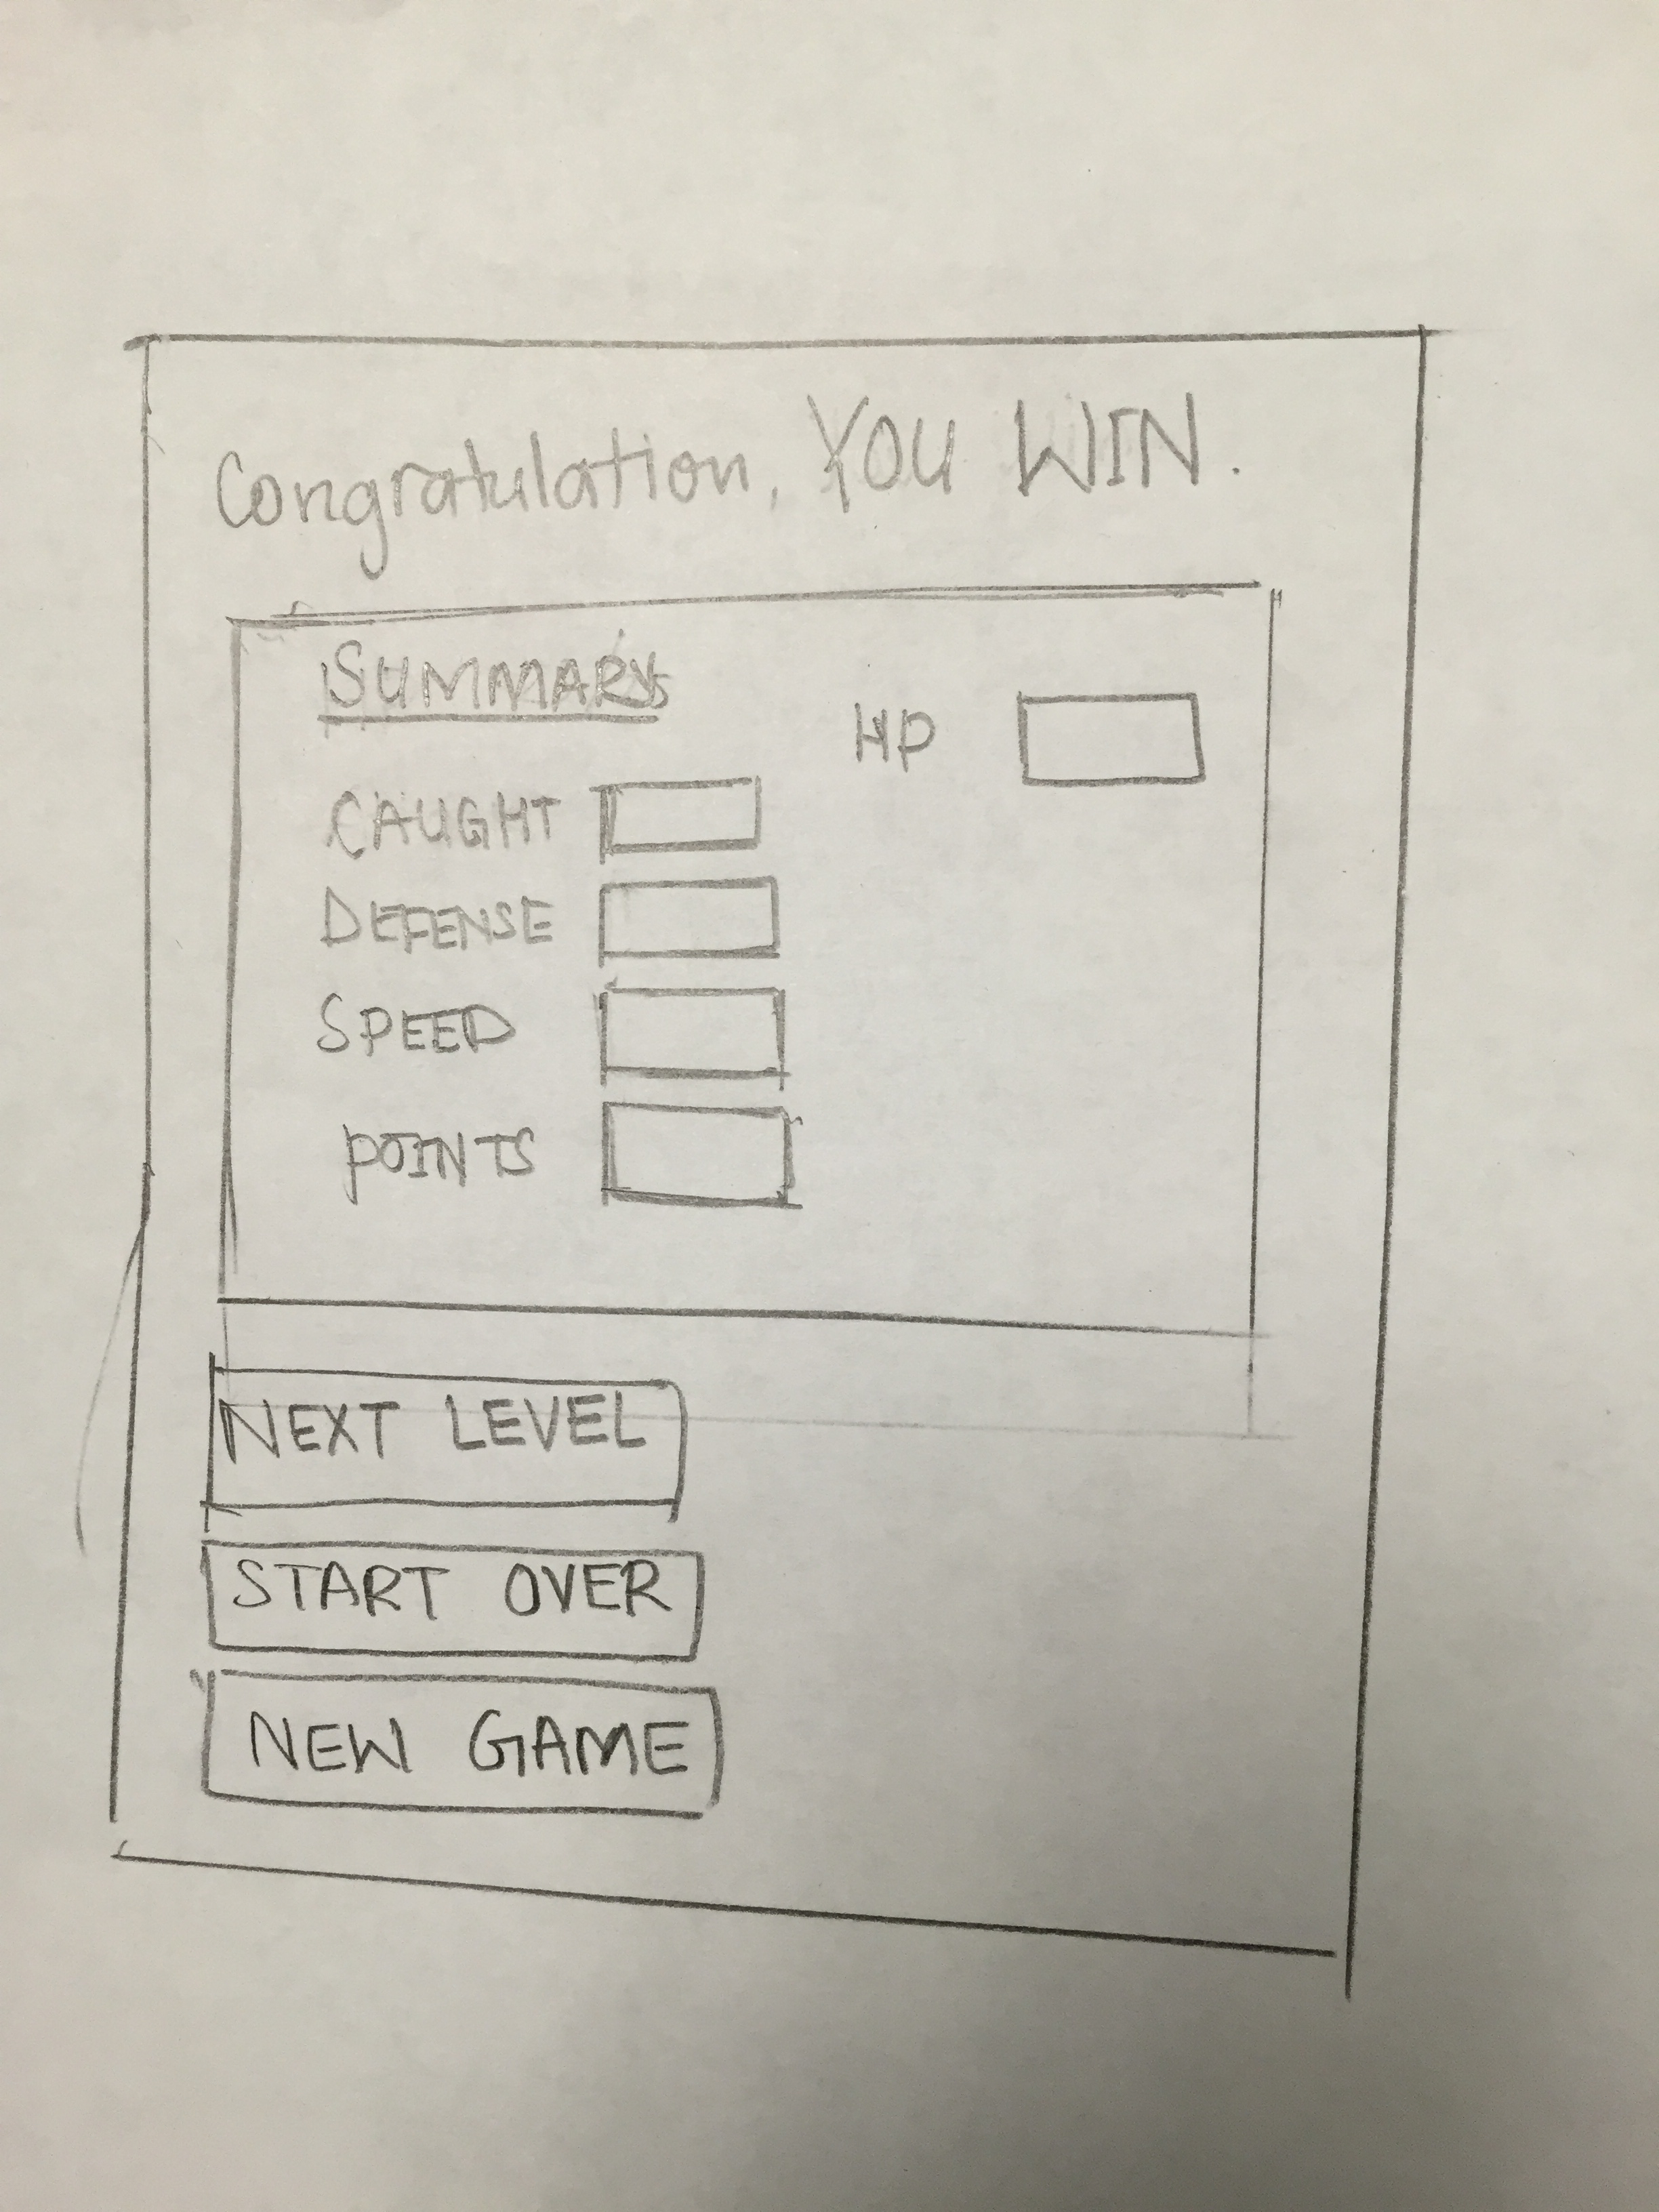 Congratulation, YOU WIN.
SUMMARY
HP
CAUGHT
DEFENSE
SPEED
POINTS
NEXT LEVEL
START OVER
NEW GAME